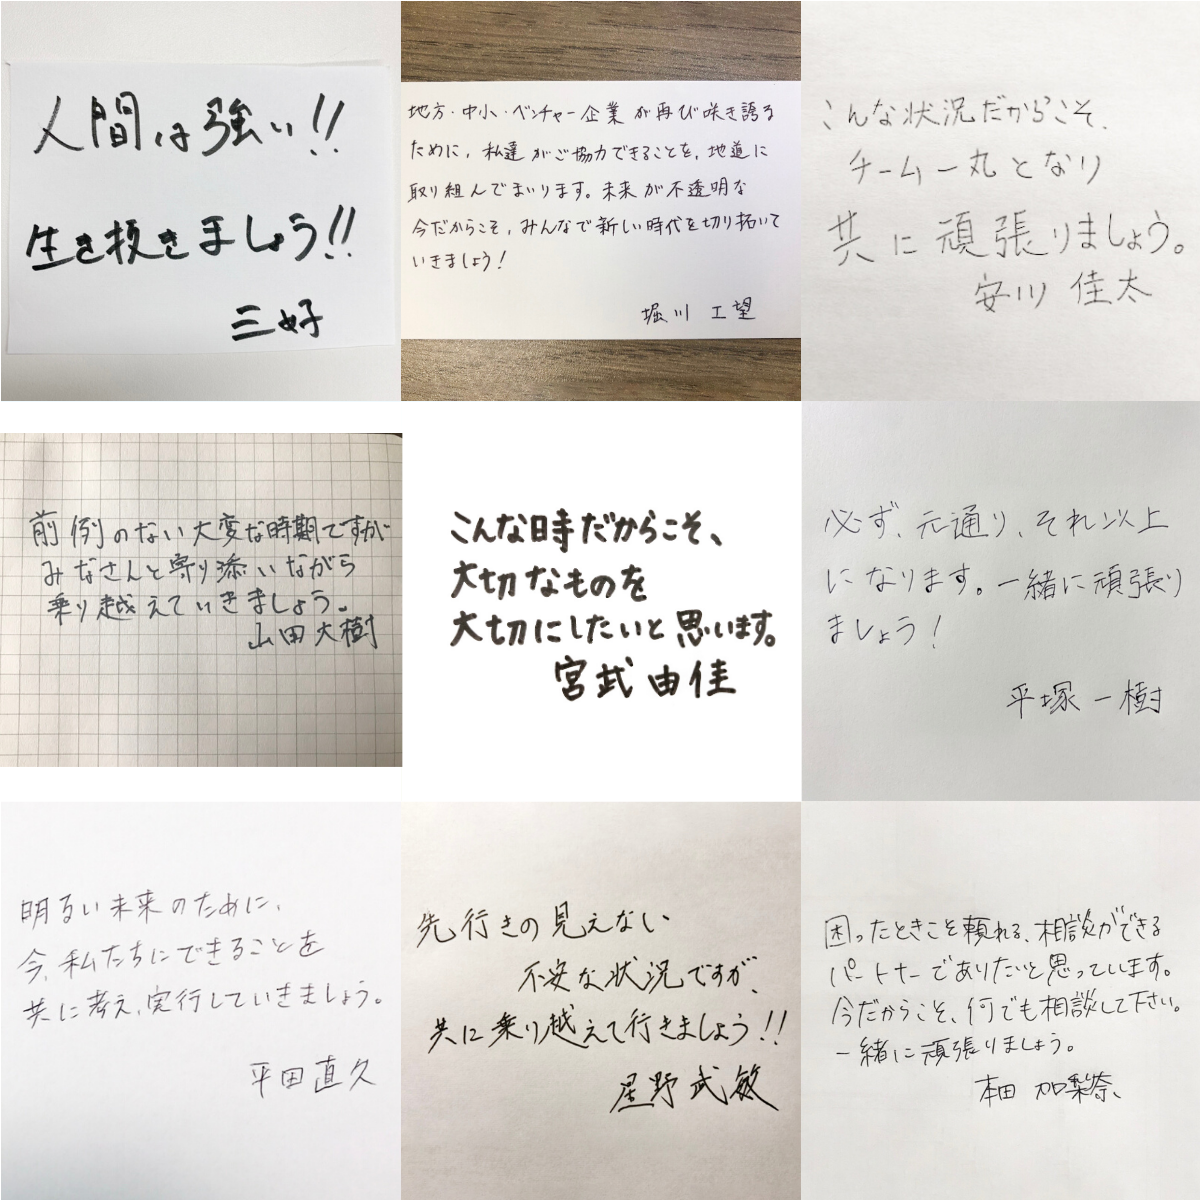 人間は強い!!
生き抜きましょう!!
三好
地方・中小・ベンチャー企業が再び咲き誇る
ために、私達がご協力できることを、地道に
取り組んでまいります。未来が不透明な
今だからこそ、みんなで新しい時代を切り拓いて
いきましょう!
堀川 工望
こんな状況だからこそ、
チーム一丸となり
共に頑張りましょう。
安川 佳太
前例のない大変な時期ですが
みなさんと寄り添いながら
乗り越えていきましょう。
山田大樹
こんな時だからこそ、
大切なものを
大切にしたいと思います。
宮武由佳
必ず、元通り、それ以上
になります。一緒に頑張り
ましょう!
平塚一樹
明るい未来のために、
今、私たちにできることを
共に考え、実行していきましょう。
平田直久
先行きの見えない
不安な状況ですが、
共に乗り越えて行きましょう!!
星野武敏
困ったときこそ頼れる、相談ができる
パートナーでありたいと思っています。
今だからこそ、何でも相談して下さい。
一緒に頑張りましょう。
本田 加梨奈